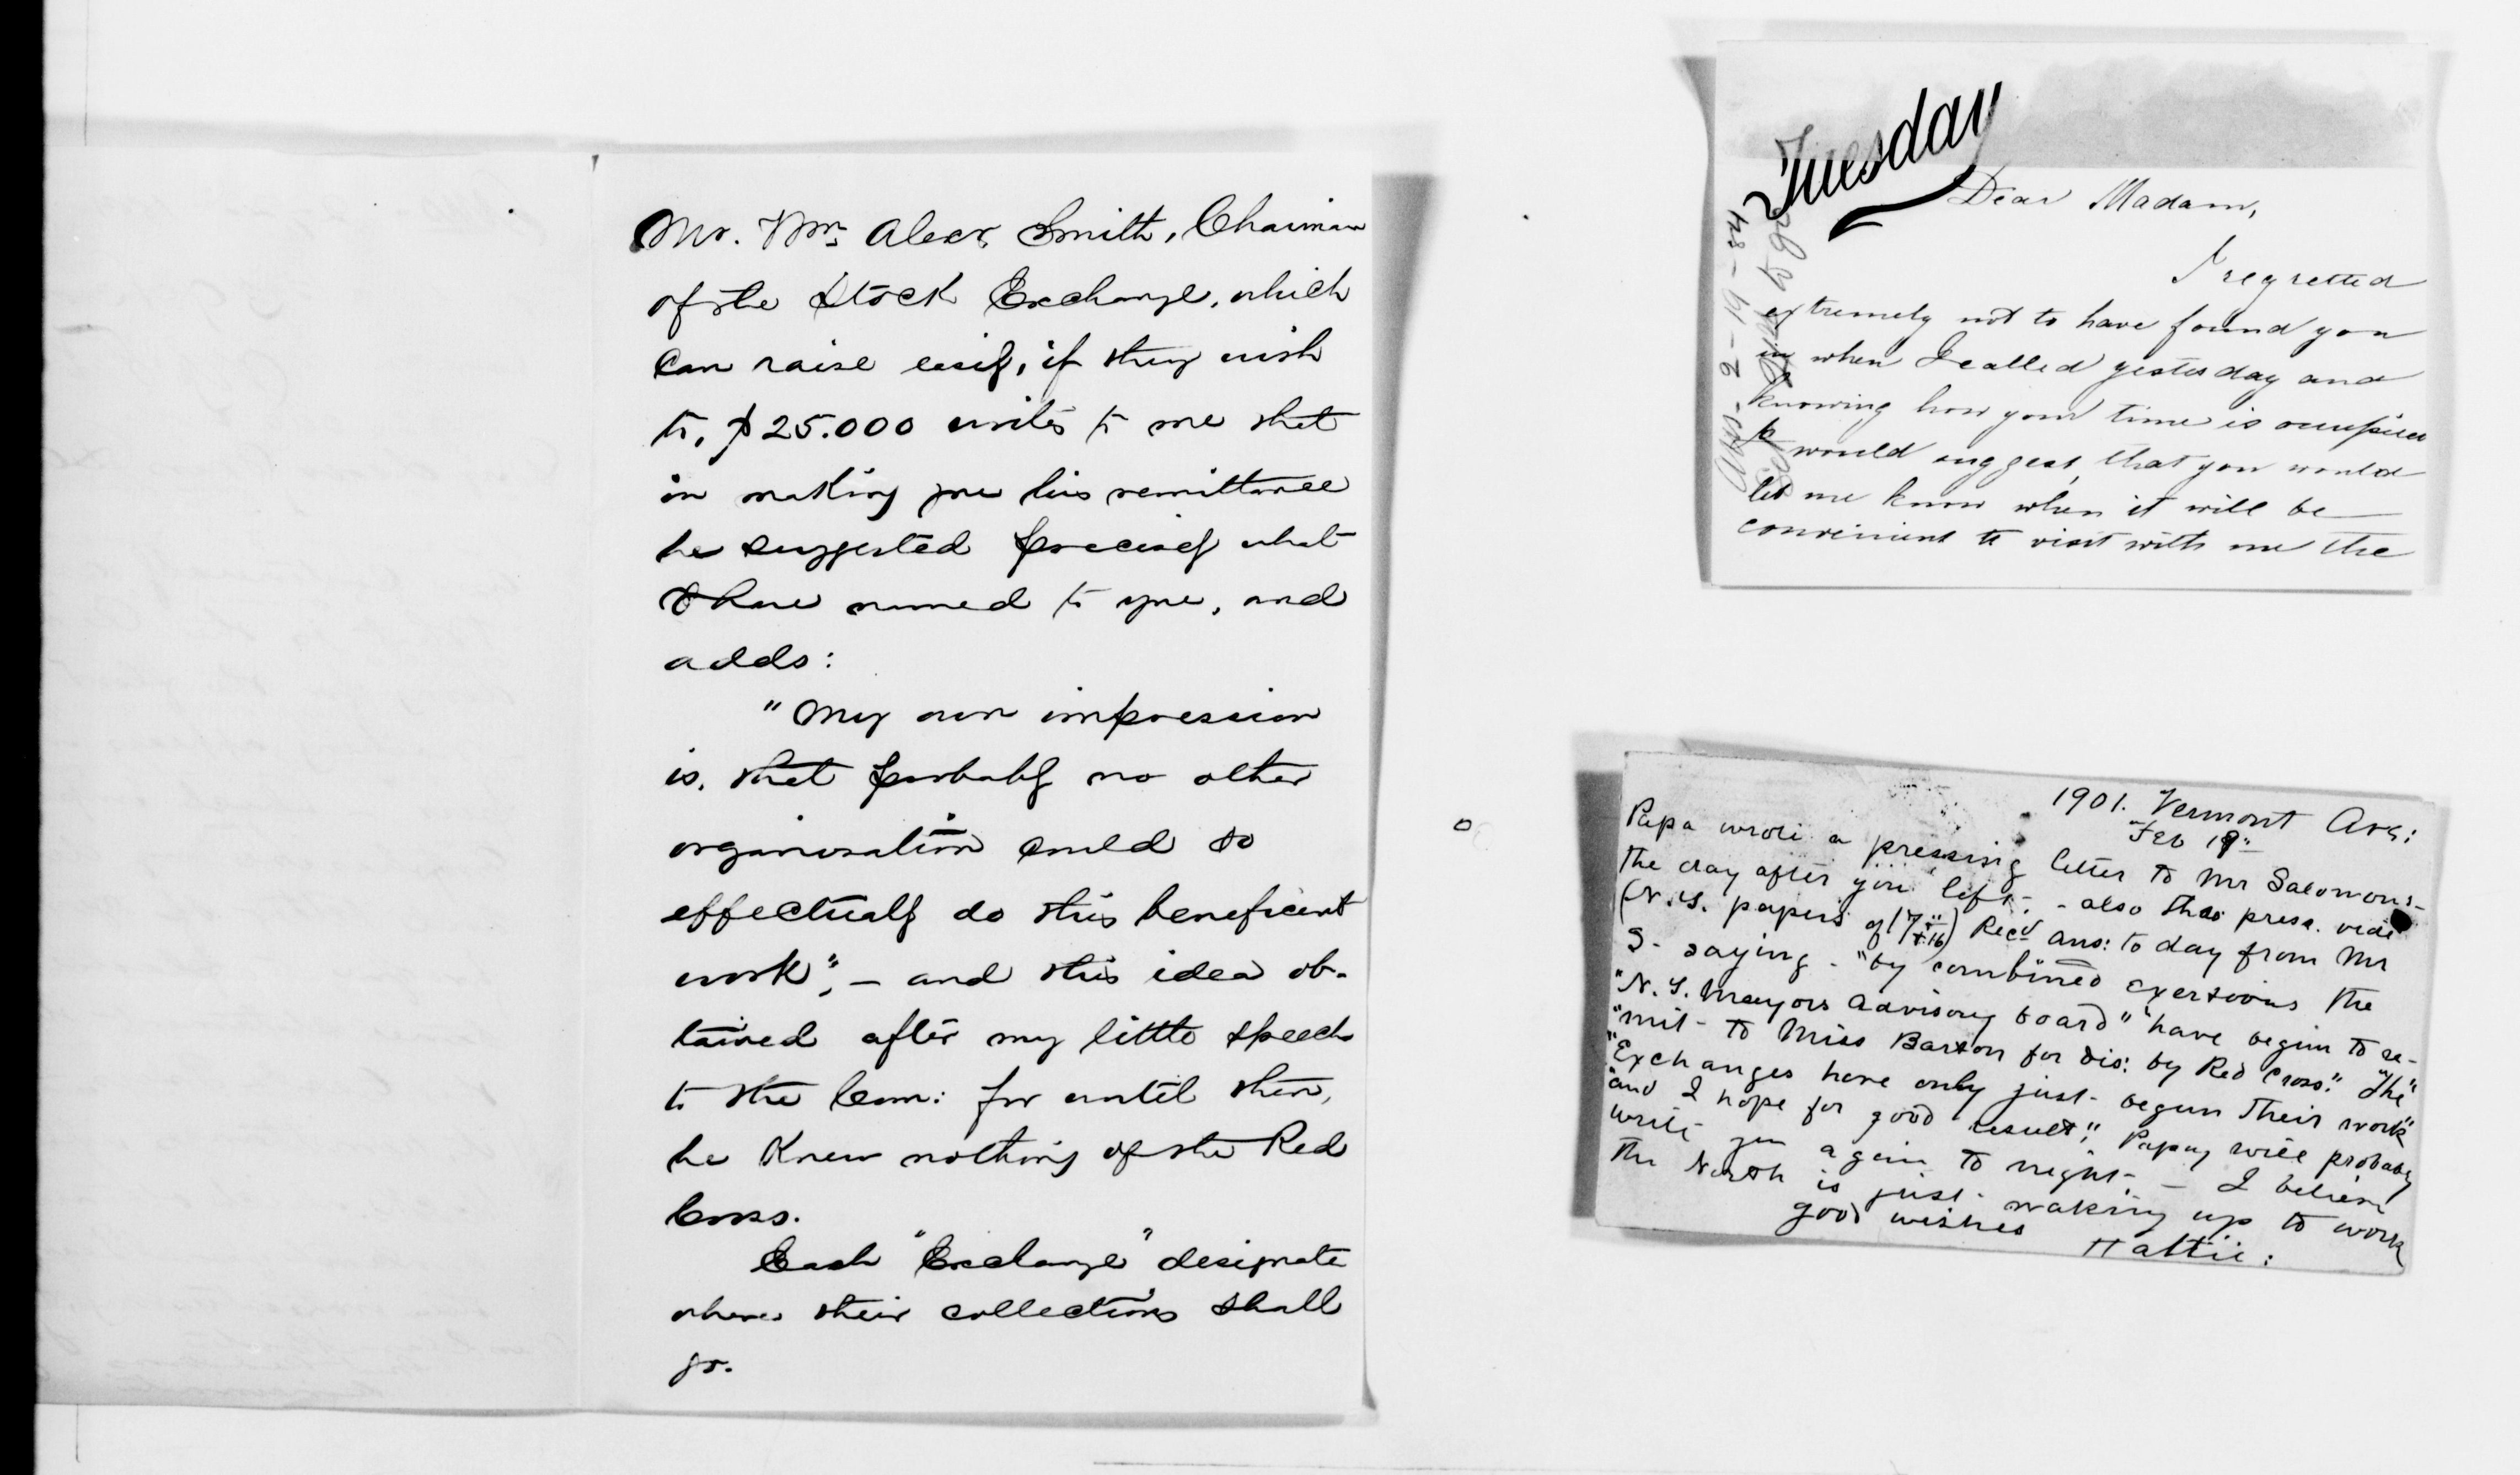 Mr. Wm. Alexr. Smith, Chairman
of the Stock Exchange, which
can raise easily, if they wish
to, $25.000 writes to me that
in making me his remittance
he suggested precisely what
I have named to you, and
adds:
"My own impression
is, that probably no other
organization could so
effectually do this beneficent
work", — and this idea ob-
tained after my little speech
to the Com: for until then,
he knew nothing of the Red
Cross.
Each "Exchange" designate
where their collections shall
go.
Tuesday
Dear Madam,
I regretted
extremely not to have found you
in when I called yesterday and
knowing how your time is occupied
I would suggest, that you would
let me know when it will be
convenient to visit with me the
Ans - 2 - 19 - 84
to go
1901. Vermont Ave:
Feb 19"
Papa wrote a pressing letter to Mr Salomons -
the day after you left; - also thro press. vide
(N.Y. papers of 17" + 16) Recd ans: to day from Mr
S - saying - "by combined exertions the
"N. Y. Mayors advisory board" "have begun to re-
"mit - to Miss Barton for dis: by Red Cross." "The"
"Exchanges have only just - begun their work"
"and I hope for good result", Papa, will probably
write you again to night - — I believe
the North is just - waking up to work
good wishes
Hattie: